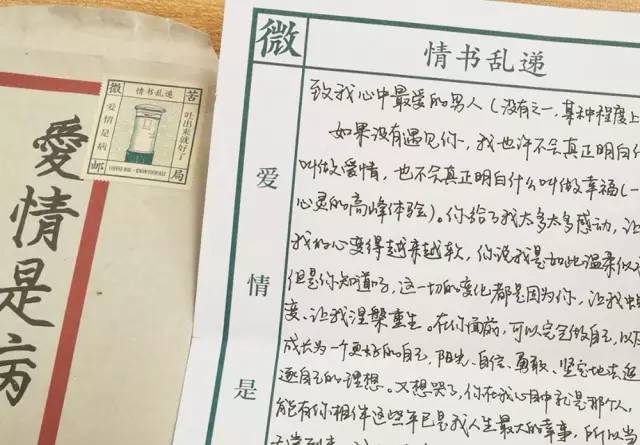 微 情书乱递 苦
爱情是病
吐出来就好了
邮 局
愛情是病
微
情书乱递
爱情是
致我心中最爱的男人(没有之一,某种程度上
如果没有遇见你,我也许不会真正明白什
叫做爱情,也不会真正明白什么叫做幸福(一
心灵的高峰体验)。你给了我太多太多感动,让
我的心变得越来越软,你说我是如此温柔似
但是你知道吗,这一切的变化都是因为你,让我
变、让我涅槃重生。在你面前,可以完全做自己,以
成长为一个更好的自己,阳光、自信、勇敢、坚定地去追
逐自己的理想。又想哭了,你在我心目中就是那个人,
能有你相伴这些年已是我人生最大的幸事,所以